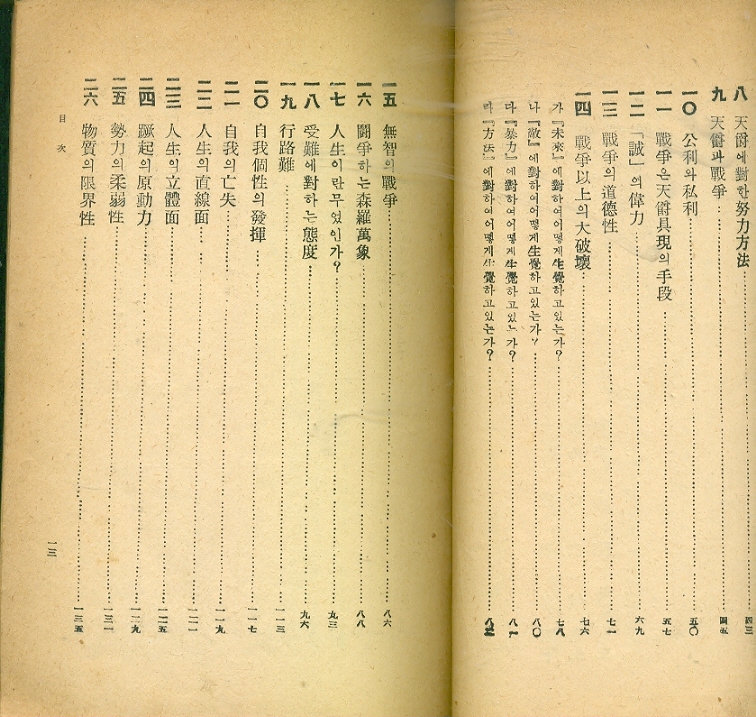 八 天爵에對한努力方法 四三
九 天爵과戰爭 四五
一〇 公利와私利 五〇
一一 戰爭은天爵具現의手段 五七
一二 「誠」의偉力 六九
一三 戰爭의道德性 七一
一四 戰爭以上의大破壞 七六
가 『未來』에對하여어떻게生覺하고있는가? 七八
나 『敵』에對하여어떻게生覺하고있는가? 八〇
다 『暴力』에對하여어떻게生覺하고있는가? 八一
라 『方法』에對하여어떻게生覺하고있는가?
一五 無智의戰爭 八六
一六 鬪爭하는森羅萬象 八八
一七 人生이란무엇인가? 九三
一八 受難에對하는態度 九六
一九 行路難 一一三
二〇 自我個性의發揮 一一七
二一 自我의亡失 一一九
二二 人生의直線面 一二一
二三 人生의立體面 一二五
二四 蹶起의原動力 一二九
二五 勢力의柔弱性 一三一
二六 物質의限界性 一三五
目次
一三